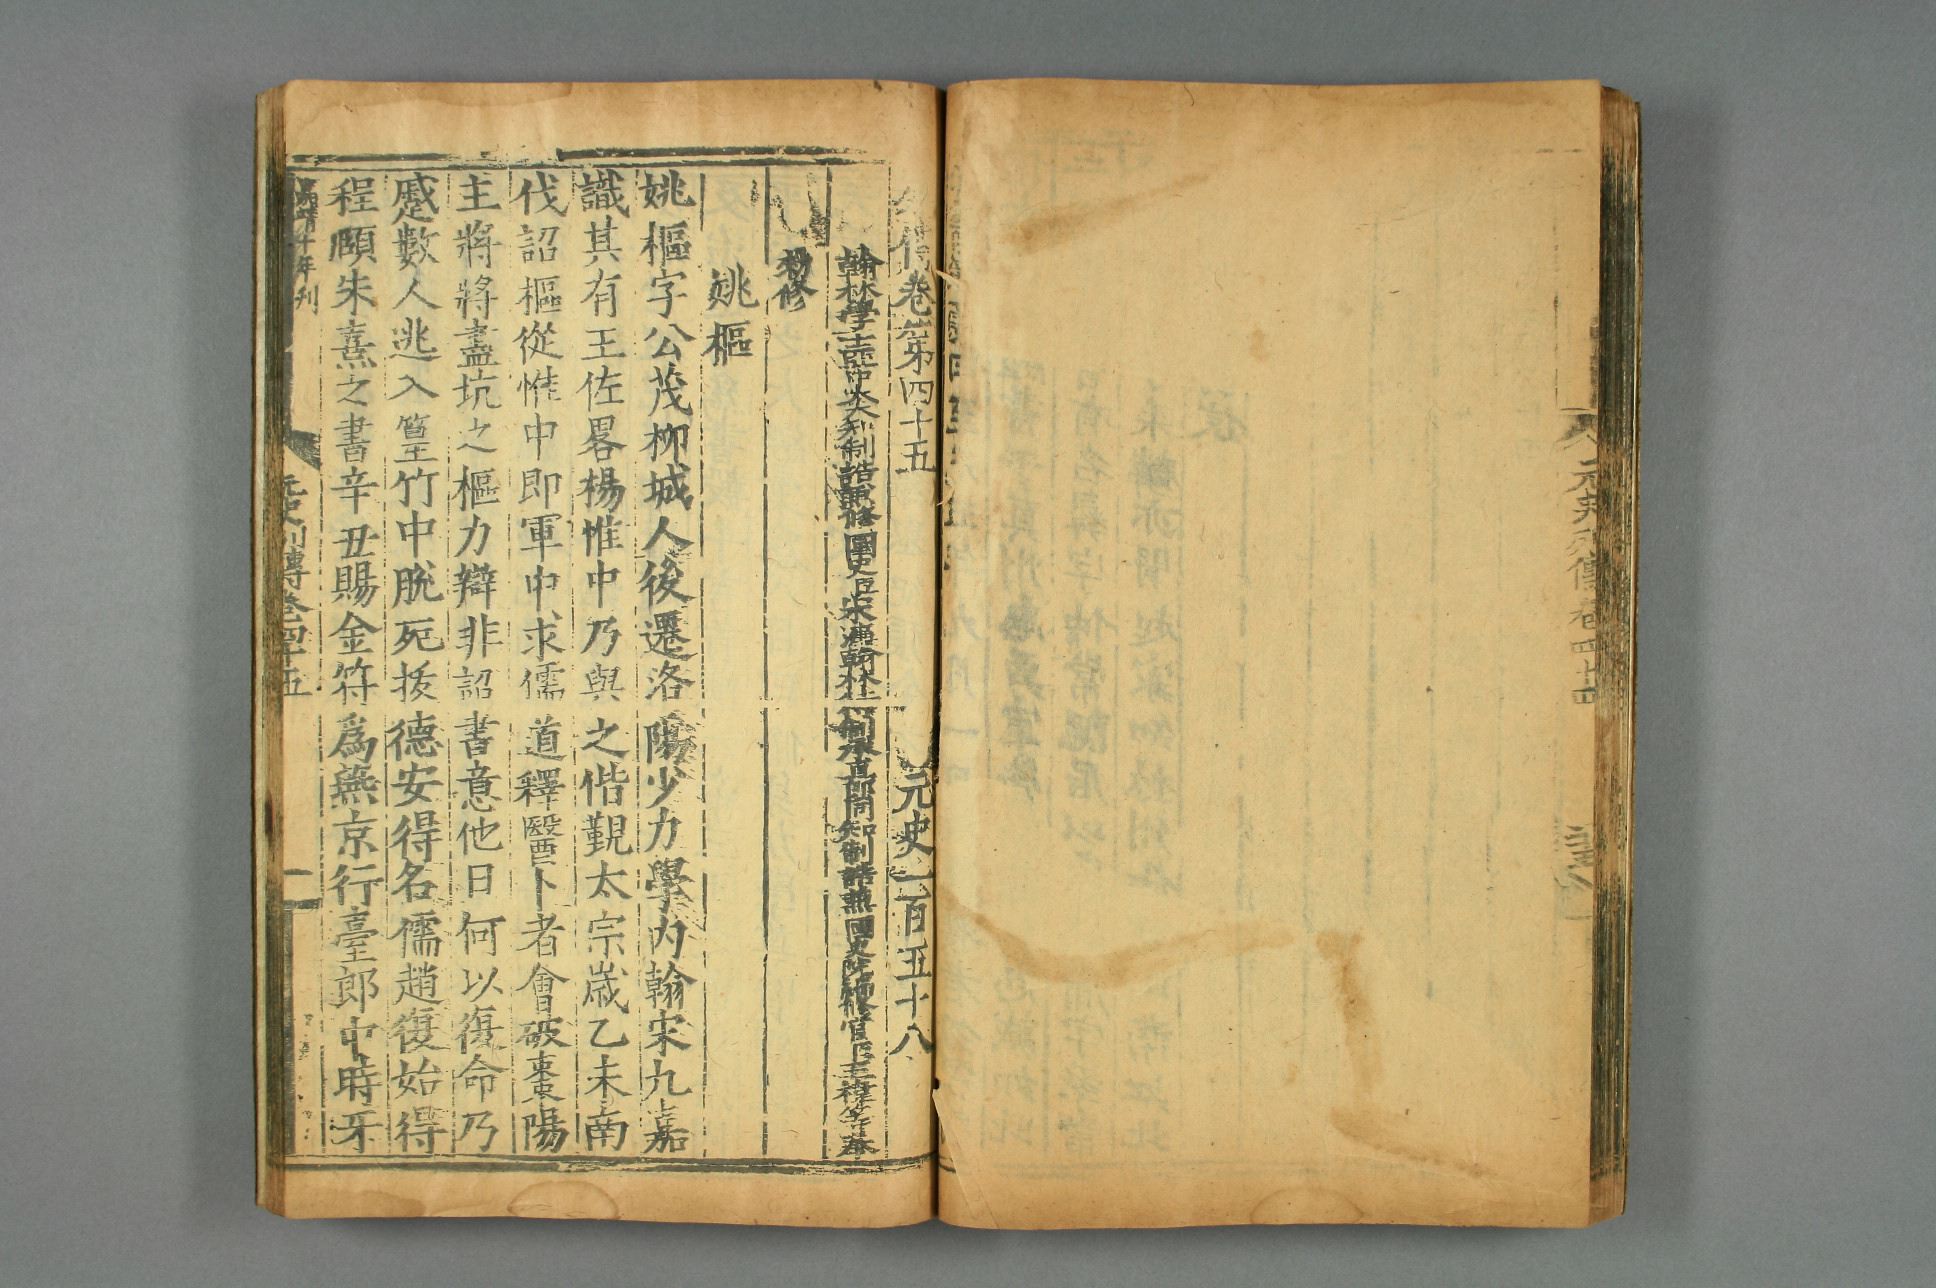 列傳卷第四十五 元史一百五十八
翰林學士亞中大夫知制誥兼修國史臣宋濂翰林待制承直郎同知制誥兼國史院編修官臣王禕等奉
勑修
姚樞
姚樞字公茂柳城人後遷洛陽少力學内翰宋九嘉
識其有王佐畧楊惟中乃與之偕覲太宗歲乙未南
伐詔樞從惟中即軍中求儒道釋醫卜者會破棗陽
主將將盡坑之樞力辯非詔書意他日何以復命乃
蹙數人逃入篁竹中脫死拔德安得名儒趙復始得
程頤朱熹之書辛丑賜金符爲燕京行臺郎中時牙
嘉靖十年刊 元史列傳卷四十五 一